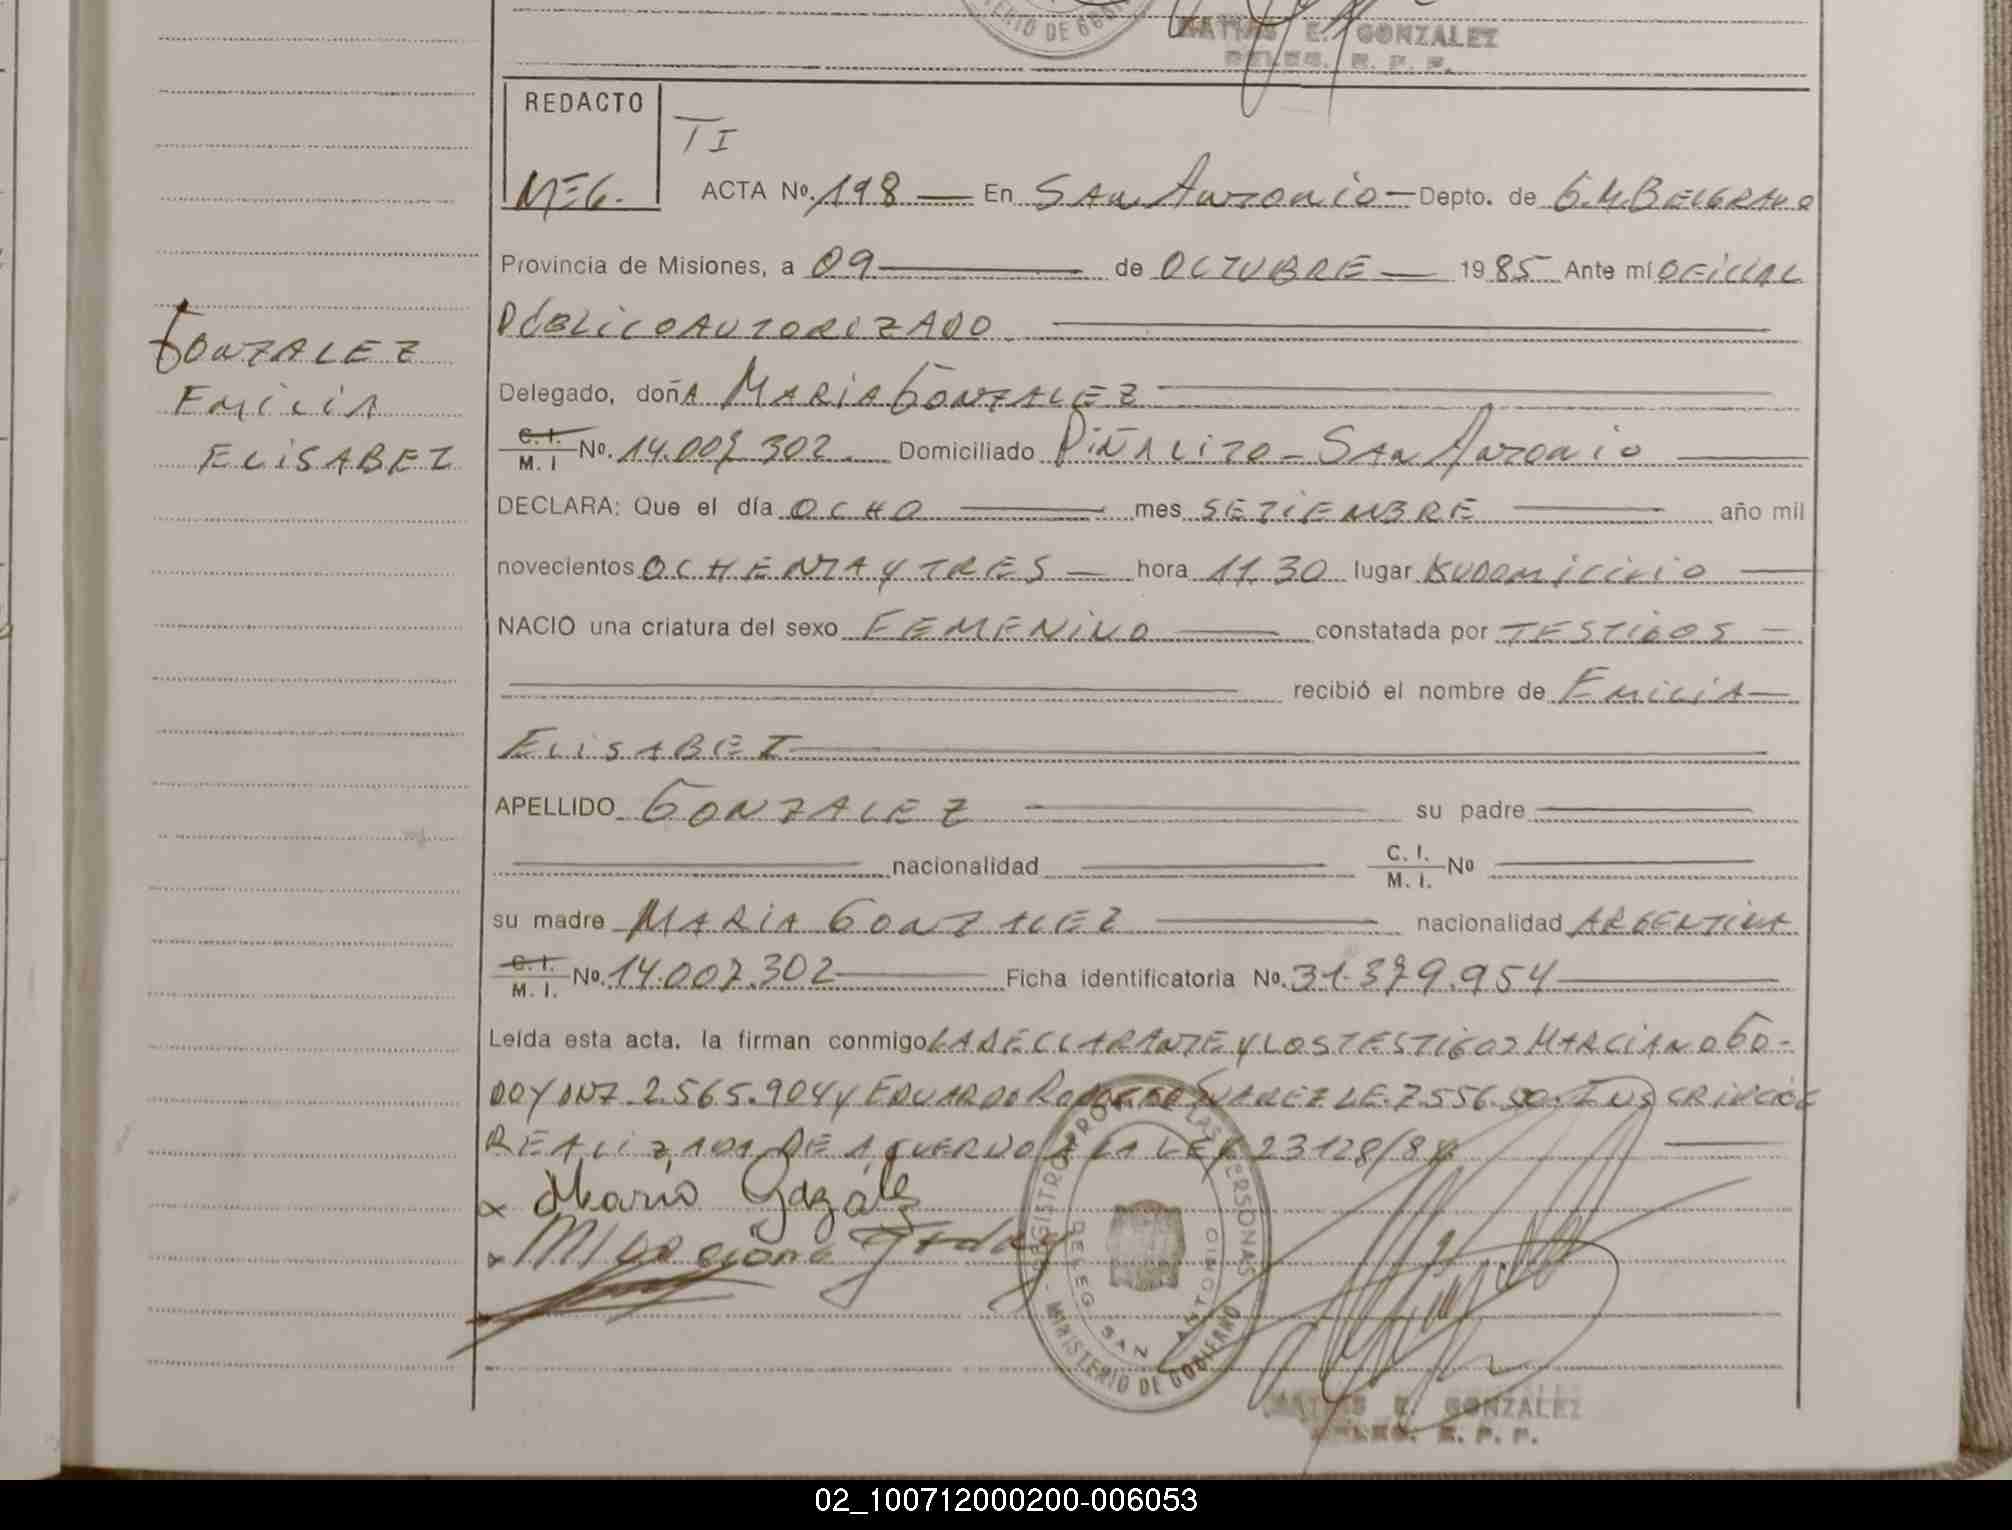 MINISTERIO DE GOBIERNO
MATIAS E. GONZALEZ
DELEG. R. P. P.
REDACTO
TI
MEG. ACTA Nº 198 — En SAN ANTONIO — Depto. de G.M. BELGRANO
Provincia de Misiones, a 09 — de OCTUBRE — 1985 Ante mí OFICIAL
PÚBLICO AUTORIZADO
GONZALEZ
EMILIA
ELISABET
Delegado, doñA MARIA GONZALEZ
C. I. / M. I Nº. 14.007.302. Domiciliado PIÑALITO - SAN ANTONIO
DECLARA: Que el día OCHO — mes SETIEMBRE — año mil
novecientos OCHENTA Y TRES — hora 11.30 lugar SU DOMICILIO —
NACIO una criatura del sexo FEMENINO — constatada por TESTIGOS —
recibió el nombre de EMILIA —
ELISABET
APELLIDO GONZALEZ — su padre
nacionalidad — C. I. / M. I. Nº
su madre MARIA GONZALEZ — nacionalidad ARGENTINA
C. I. / M. I. Nº. 14.007.302 — Ficha identificatoria Nº. 31.379.954 —
Leída esta acta, la firman conmigo LA DECLARANTE Y LOS TESTIGOS MARCIANO GO-
DOY DNI 2.565.904 y EDUARDO SUAREZ LE. INSCRIPCIÓN
REALIZADA DE ACUERDO A LA LEY 23128/84
x Maria Gazález
x Marciano Godoy
REGISTRO PROV. DE LAS PERSONAS
DELEG. SAN ANTONIO
MINISTERIO DE GOBIERNO
MATIAS E. GONZALEZ
DELEG. R. P. P.
02_100712000200-006053